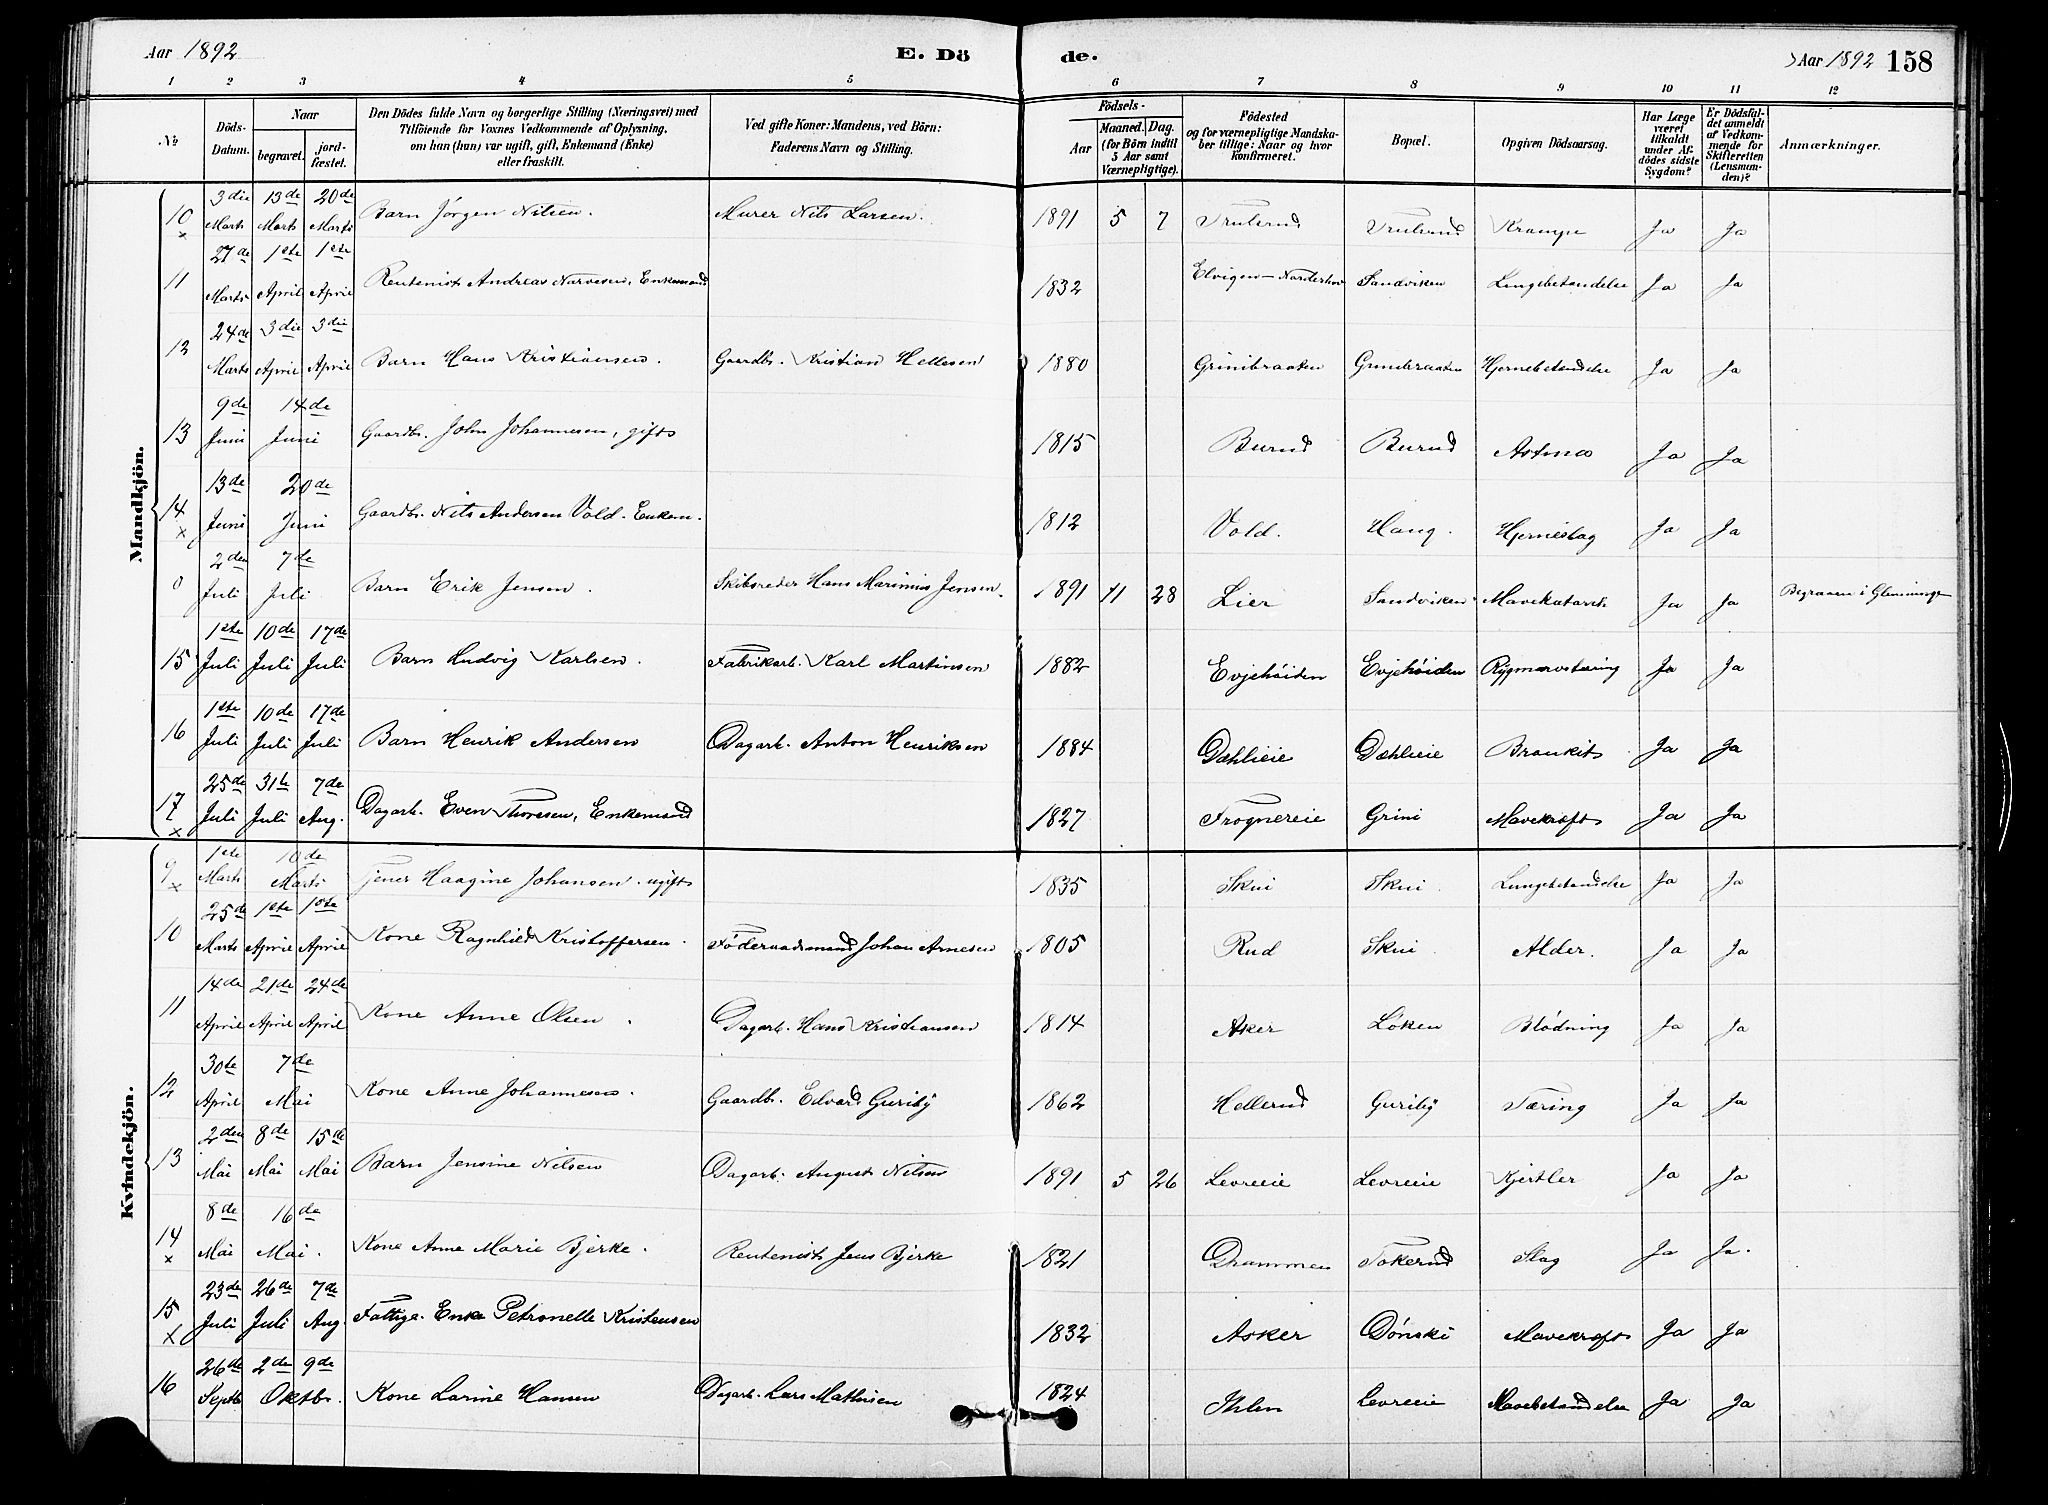 Aar 1892 E. Dö de. Aar 1892 158
1 2 3 4 5 6 7 8 9 10 11 12
№ Döds-Datum. Naar begravet. jord-fæstet. Den Dödes fulde Navn og borgerlige Stilling (Næringsvei) med Tilföiende for Voxnes Vedkommende af Oplysning, om han (hun) var ugift, gift, Enkemand (Enke) eller fraskilt. Ved gifte Koner: Mandens, ved Börn: Faderens Navn og Stilling. Födsels- Aar Maaned. Dag. (for Börn indtil 5 Aar samt Værnepligtige). Födested og for værnepligtige Mandska-ber tillige: Naar og hvor konfirmeret. Bopæl. Opgiven Dödsaarsag. Har Læge været tilkaldt under Af-dödes sidste Sygdom? Er Dödsfal-det anmeldt af Vedkom-mende for Skifteretten (Lensman-den)? Anmærkninger.
Mandkjön.
10 x 3die Marts 13de Marts 20de Marts Barn Jørgen Nilsen. Murer Nils Larsen. 1891 5 7 Trulsrud Trulsrud Krampe Ja Ja
11 27de Marts 1ste April 1ste April Rentenist Andreas Narvesen, Enkemand 1832 Elvigen - Norderhov Sandviken Lungebetændelse Ja Ja
12 24de Marts 3die April 3die April Barn Hans Kristiansen. Gaardbr. Kristian Hellesen 1880 Grinibraaten Grinibraaten Hjernebetændelse Ja Ja
13 9de Juni 14de Juni Gaardbr. John Johannesen, gift 1815 Burud Burud Astma Ja Ja
14 x 13de Juni 20de Juni Gaardbr. Nils Andersen Vold. Enkem. 1812 Vold. Haug. Hjerneslag Ja Ja
0 2den Juli 7de Juli Barn Erik Jensen. Skibsreder Hans Marinius Jensen. 1891 11 28 Lier Sandviken Mavekatarrh Ja Ja Begraven i Glemminge
15 1ste Juli 10de Juli 17de Juli Barn Ludvig Karlsen. Fabrikarb. Karl Martinsen 1882 Evjehøiden Evjehøiden Rygmarvstæring Ja Ja
16 1ste Juli 10de Juli 17de Juli Barn Henrik Andersen Dagarb. Anton Henriksen 1884 Dæhlieie Dæhlieie Bronkit Ja Ja
17 x 25de Juli 31te Juli 7de Aug. Dagarb. Even Thoresen, Enkemand 1827 Frognereie Grini Mavekræft Ja Ja
Kvindekjön.
9 x 1ste Marts 10de Marts Tjener Haagine Johansen. ugift 1835 Skui Skui. Lungebetændelse Ja Ja
10 25de Marts 1ste April 1ste April Kone Ragnhild Kristoffersen. Føderaadsmand Johan Arnesen 1805 Rud Skui Alder. Ja Ja
11 14de April 21de April 24de April Kone Anne Olsen. Dagarb. Hans Kristiansen 1814 Asker Løken Blødning Ja Ja
12 30te April 7de Mai Kone Anne Johannesen. Gaardbr. Edvard Guriby 1862 Hellerud Guriby Tæring Ja Ja
13 2den Mai 8de Mai 15de Mai Barn Jensine Nilsen Dagarb. August Nilsen 1891 5 26 Levreeie Levreeie Kjertler Ja Ja
14 x 8de Mai 16de Mai. Kone Anne Marie Bjerke. Rentenist Jens Bjerke 1821 Drammen Tokerud Slag Ja Ja.
15 x 23de Juli 26de Juli 7de Aug. Fattige. Enke Petronelle Kristensen 1832 Asker Dønski Mavekræft Ja Ja
16 26de Septb 2de 9de Oktbr. Kone Larine Hansen Dagarb. Lars Mathisen 1824 Ihlen Levreeie Mavebetændelse Ja Ja